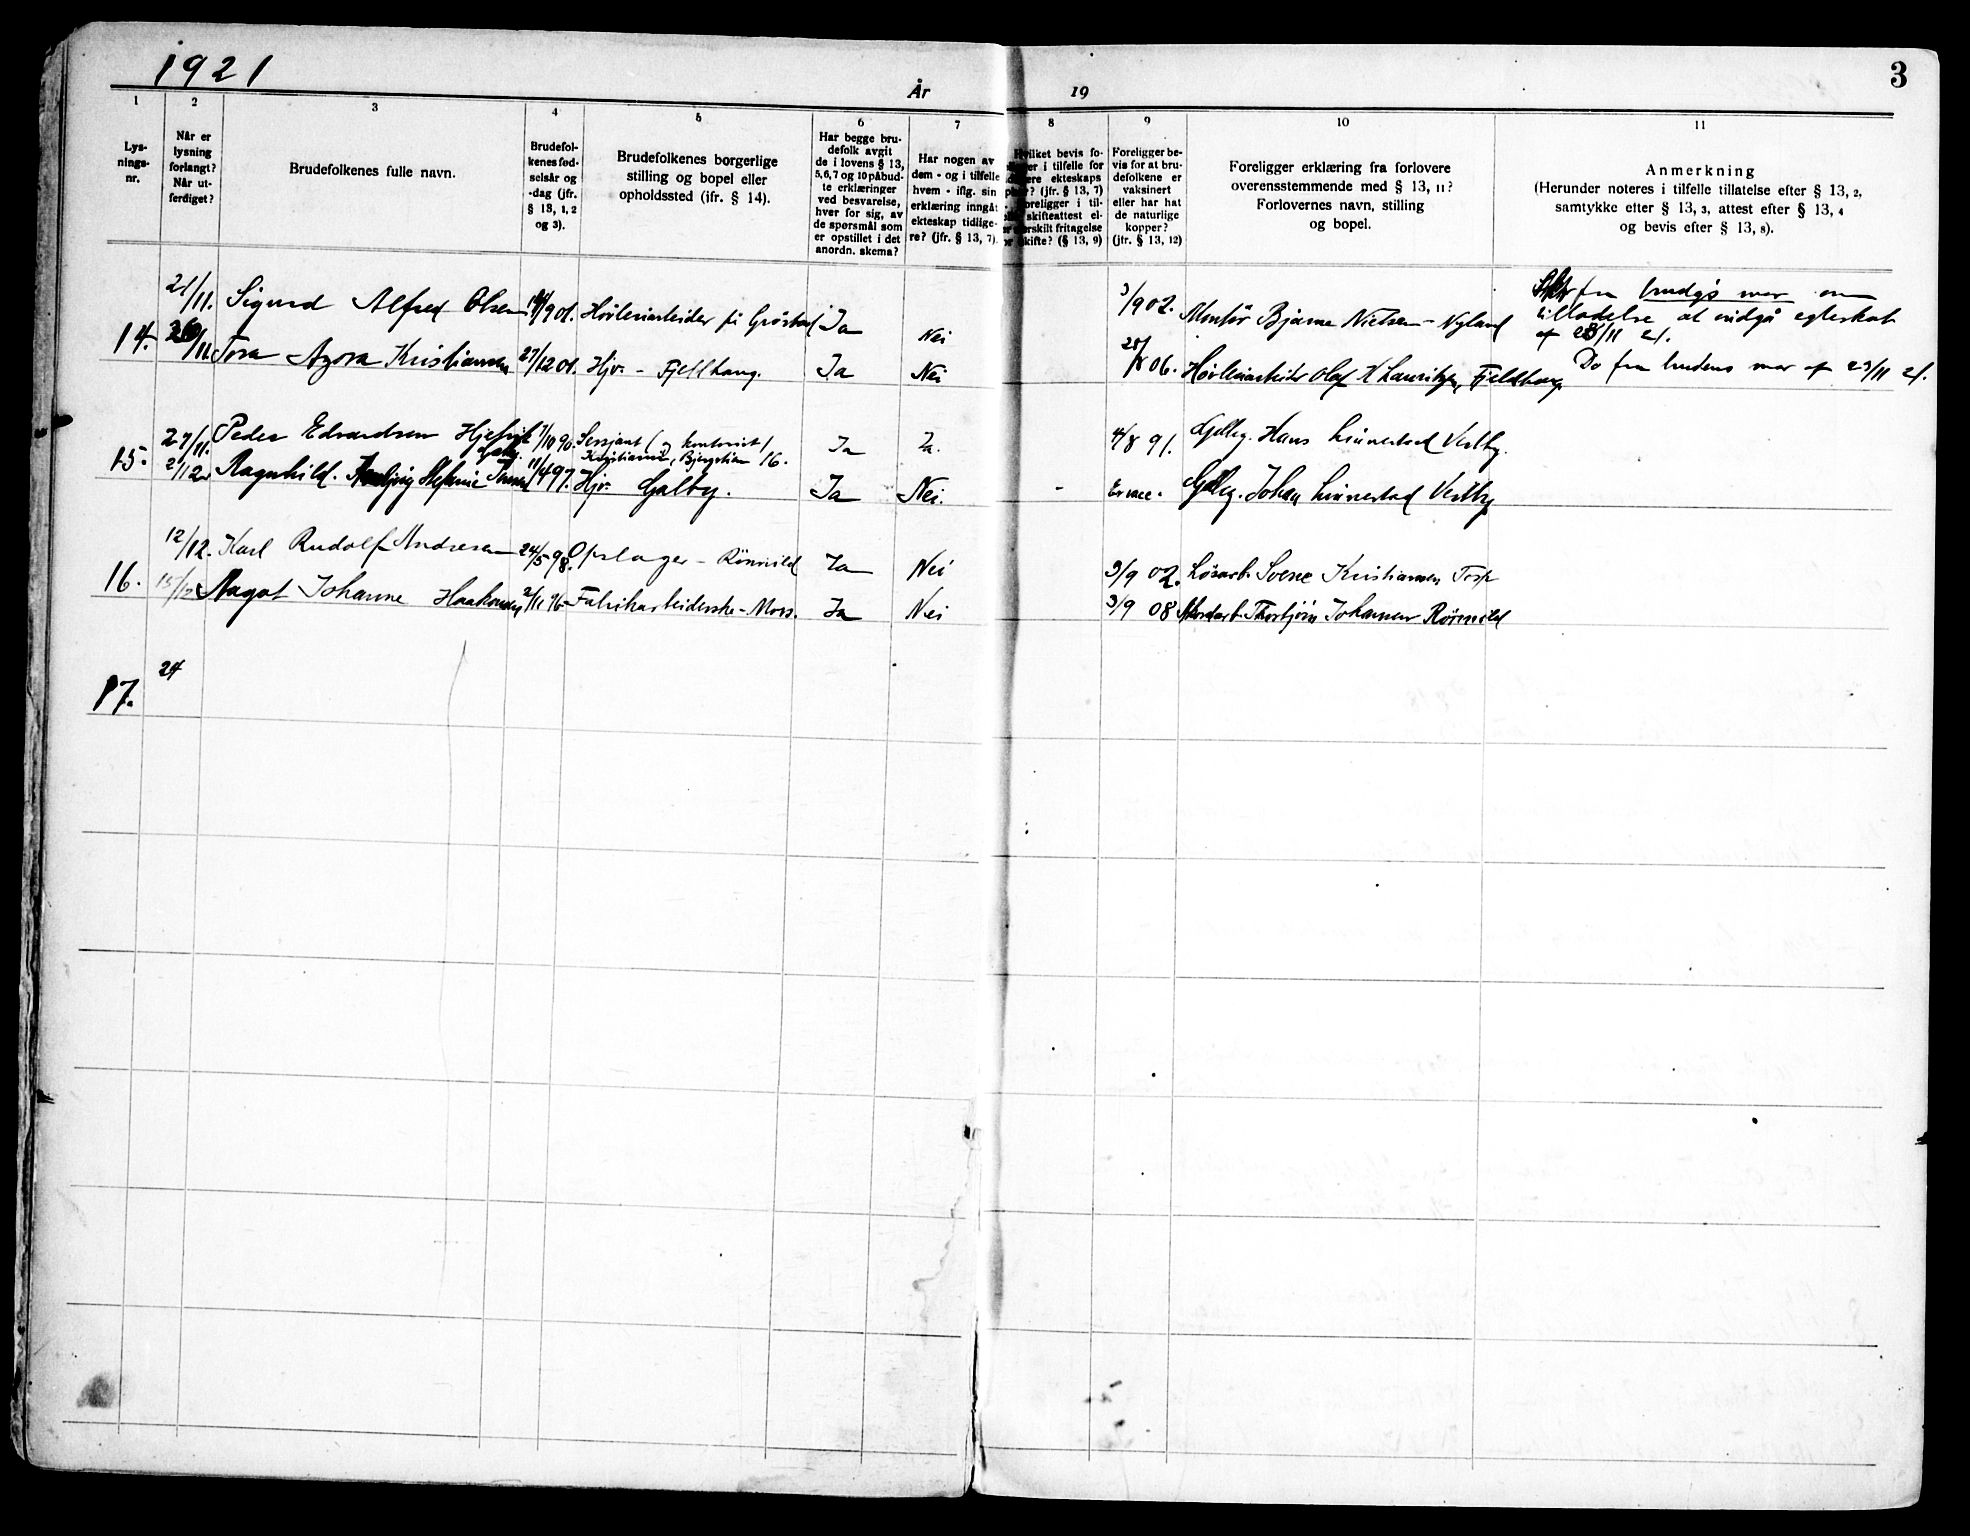 1921
År
19
3
1
2
3
4
5
6
7
8
9
10
11
Lys-
nings-
nr.
Når er
lysning
forlangt?
Når ut-
ferdiget?
Brudefolkenes fulle navn.
Brudefol-
kenes fød-
selsår og
-dag (jfr.
§ 13, 1, 2
og 3).
Brudefolkenes borgerlige
stilling og bopel eller
opholdssted (jfr. § 14).
Har begge bru-
defolk avgit
de i lovens § 13,
5, 6, 7 og 10 påbud-
te erklæringer
ved besvarelse,
hver for sig, av
de spørsmål som
er opstillet i det
anordn. skema?
Har nogen av
dem - og i tilfelle
hvem - iflg. sin
erklæring inngåt
ekteskap tidlige-
re? (jfr. § 13, 7).
bevis fo-
i tilfelle for
ekteskaps
(jfr. § 13, 7)
i til-
skifteattest el-
fritagelse
skifte? (§ 13, 9)
Foreligger be-
vis for at bru-
defolkene er
vaksinert
eller har hat
de naturlige
kopper?
(jfr. § 13, 12)
Foreligger erklæring fra forlovere
overensstemmende med § 13, 11?
Forlovernes navn, stilling
og bopel.
Anmerkning
(Herunder noteres i tilfelle tillatelse efter § 13, 2,
samtykke efter § 13, 3, attest efter § 13, 4
og bevis efter § 13, 8).
14.
21/11. Sigurd Alfred Olsen /9 01. Høvleriarbeider på Ja Nei 3/9 02. Montør Bjarne Nielsen - Nyland
fra brudg's mor om
tilladelse at indgå egteskab
af /11 21.
26/11. Tora Azora Kristiansen 27/12 01. Hjv. - Fjellhaug. Ja Nei 06. Høvleriarbeider Olaf Lauritzen, Fjeldhaug
Do fra brudens mor af 23/11 21.
15.
27/11. Peder Edvardsen 7/10 90. Sersjant ( kontorist) Ja Ja. 4/8 91. Hans Linnestad Vestby.
Kristiania, 16.
2/12 Ragnhild. 11/4 97. Hjv. Galby. Ja Nei. - Er vacc. Johan Linnestad Vestby
16.
12/12. Karl Rudolf Andresen 24/5 98. Opslager - Rønnild Ja Nei 3/9 02. Løsarb. Kristiansen
15/12 Magot Johanne Haakonsen 2/11 96. Fabrikarbeiderske - Moss. Ja Nei 3/9 08 Thorbjørn Johansen
17.
24